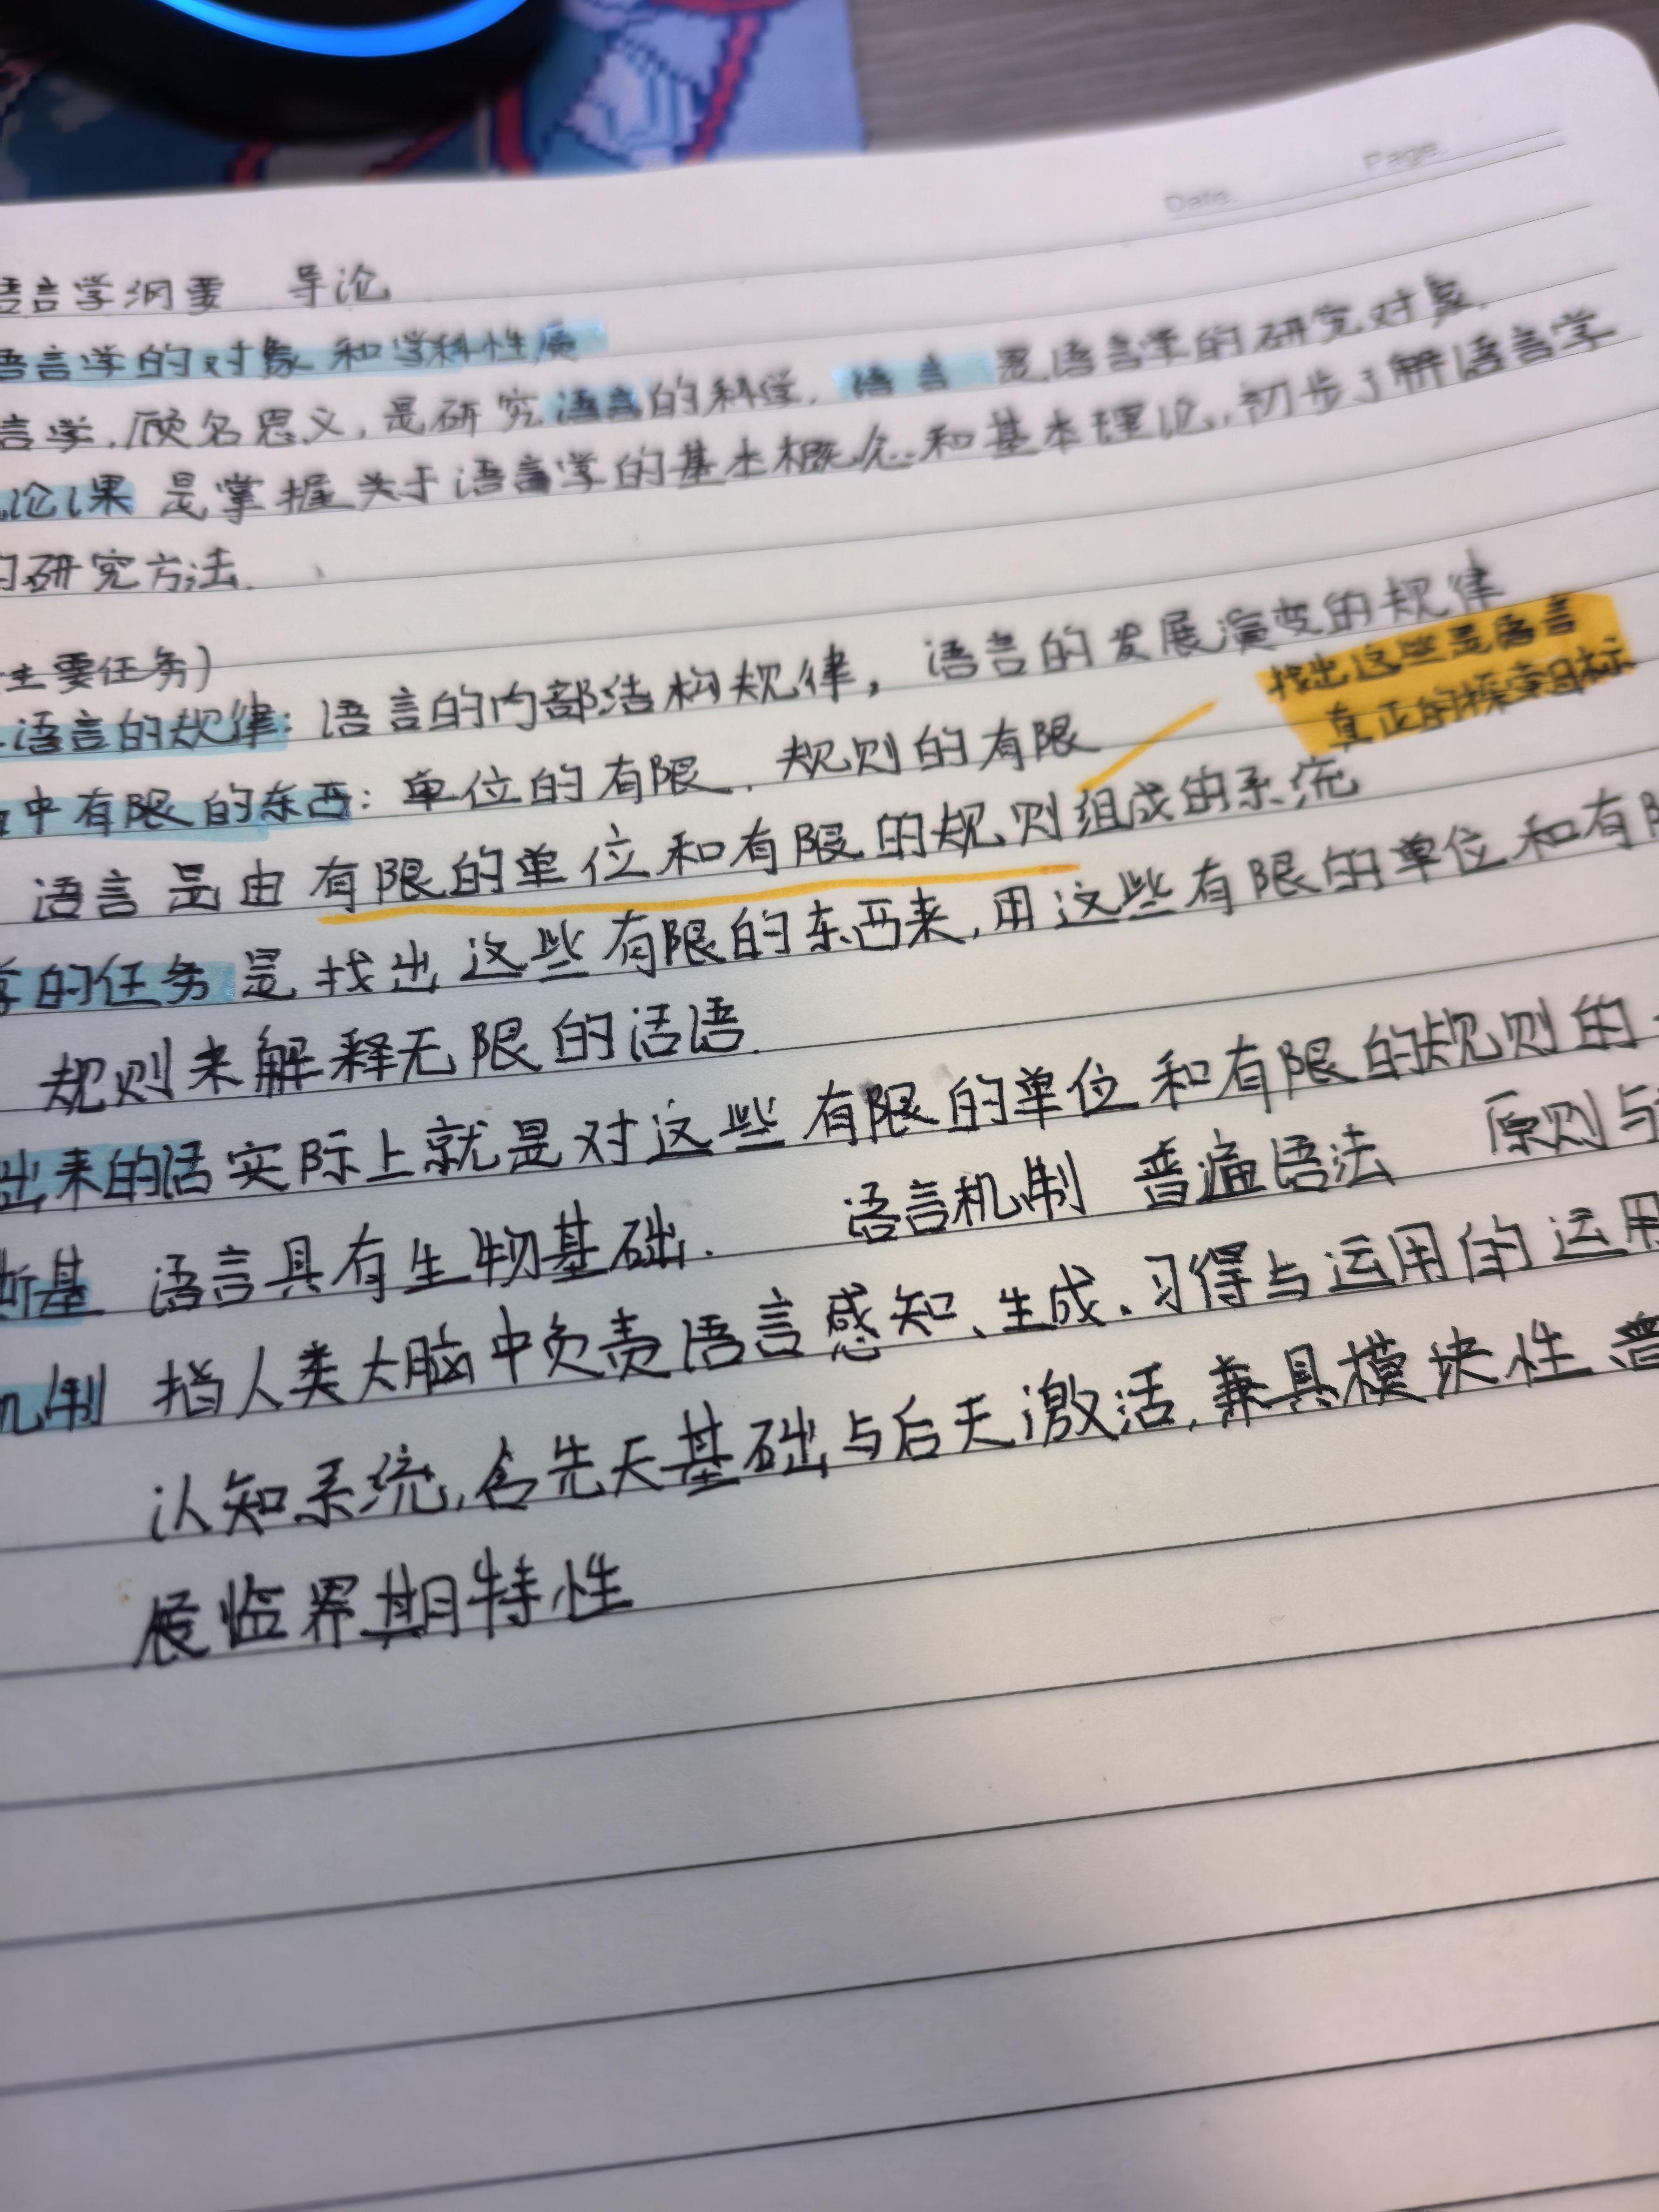 Date.
Page.
语言学纲要 导论
语言学的对象和学科性质
言学,顾名思义,是研究语言的科学.语言是语言学的研究对象.
论课是掌握关于语言学的基本概念和基本理论,初步了解语言学
的研究方法.
主要任务)
语言的规律:语言的内部结构规律,语言的发展演变的规律
找出这些是语言
真正的探索目标
中有限的东西:单位的有限.规则的有限
语言是由有限的单位和有限的规则组成的系统
学的任务是找出这些有限的东西来,用这些有限的单位和有限
规则来解释无限的话语.
出来的话实际上就是对这些有限的单位和有限的规则的
斯基 语言具有生物基础. 语言机制 普遍语法 原则与
机制 指人类大脑中负责语言感知、生成.习得与运用的运用
认知系统,含先天基础与后天激活,兼具模块性 普
展临界期特性